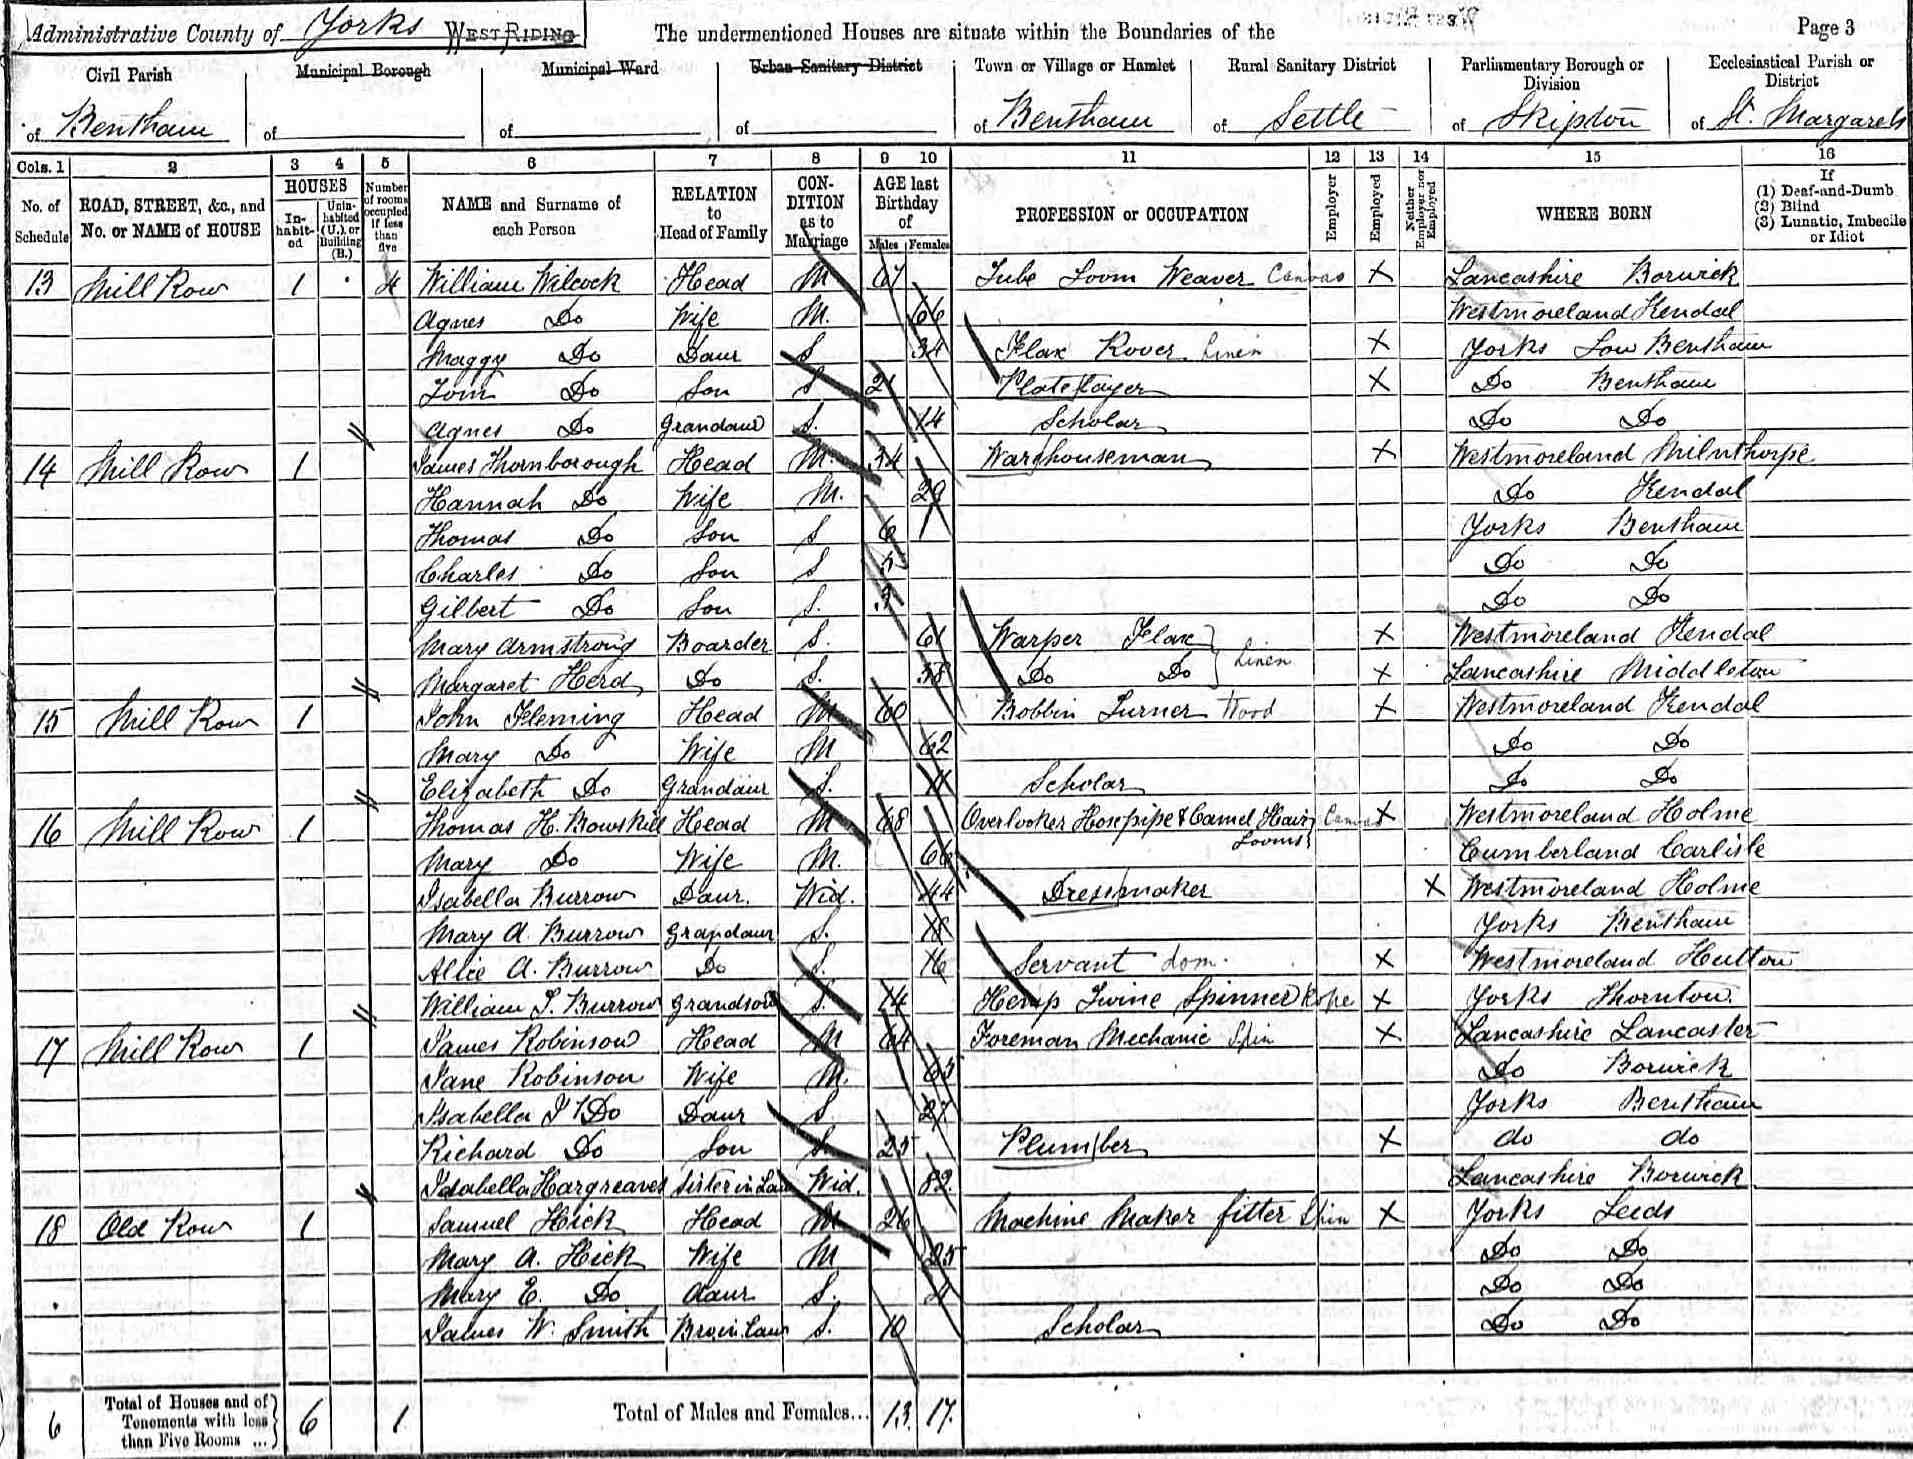 Administrative County of Yorks WEST RIDING The undermentioned Houses are situate within the Boundaries of the Page 3
Civil Parish Municipal Borough Municipal Ward Urban Sanitary District Town or Village or Hamlet Rural Sanitary District Parliamentary Borough or Division Ecclesiastical Parish or District
of Bentham of of of of Bentham of Settle of Skipton of St. Margarets
Cols. 1 2 3 4 5 6 7 8 9 10 11 12 13 14 15 16
No. of Schedule ROAD, STREET, &c., and No. or NAME of HOUSE HOUSES In-habit-ed Unin-habited (U.), or Building (B.) Number of rooms occupied if less than five NAME and Surname of each Person RELATION to Head of Family CON-DITION as to Marriage AGE last Birthday of Males Females PROFESSION or OCCUPATION Employer Employed Neither Employer nor Employed WHERE BORN If (1) Deaf-and-Dumb (2) Blind (3) Lunatic, Imbecile or Idiot
13 Mill Row 1 4 William Wilcock Head M 67 Tube Loom Weaver Canvas X Lancashire Borwick
Agnes Do Wife M. 66 Westmoreland Kendal
Maggy Do Daur S 34 Flax Rover Linen X Yorks Low Bentham
Tom Do Son S 21 Plate Layer X Do Bentham
Agnes Do Grandaur S. 14 Scholar Do Do
14 Mill Row 1 James Thornborough Head M. 34 Warehouseman X Westmoreland Milnthorpe
Hannah Do Wife M. 29 Do Kendal
Thomas Do Son S 6 Yorks Bentham
Charles Do Son S 5 Do Do
Gilbert Do Son S. 3 Do Do
Mary Armstrong Boarder S. 61 Warper Flax X Westmoreland Kendal
Margaret Herd Do S. 38 Do Do } Linen X Lancashire Middleton
15 Mill Row 1 John Fleming Head M 60 Bobbin Turner Wood X Westmoreland Kendal
Mary Do Wife M 62 Do Do
Elizabeth Do Grandaur S. 11 Scholar Do Do
16 Mill Row 1 Thomas H. Bowskill Head M 68 Overlooker Hosepipe & Camel Hair Looms } Canvas X Westmoreland Holme
Mary Do Wife M. 66 Cumberland Carlisle
Isabella Burrow Daur. Wid. 44 Dressmaker X Westmoreland Holme
Mary A. Burrow Grandaur S. 18 Yorks Bentham
Alice A. Burrow Do S. 16 Servant dom. X Westmoreland Hutton
William T. Burrow Grandson S. 14 Hemp Twine Spinner Rope X Yorks Thornton
17 Mill Row 1 James Robinson Head M 64 Foreman Mechanic Spin X Lancashire Lancaster
Jane Robinson Wife M. 65 Do Borwick
Isabella J Do Daur S. 27 Yorks Bentham
Richard Do Son S. 25 Plumber X do do
Isabella Hargreaves Sister in Law Wid. 82 Lancashire Borwick
18 Old Row 1 Samuel Hick Head M 26 Machine Maker fitter Spin X Yorks Leeds
Mary A. Hick Wife M 25 Do Do
Mary E. Do daur S. Do Do
James W. Smith Bro in Law S. 10 Scholar Do Do
6 Total of Houses and of Tenements with less than Five Rooms ...} 6 1 Total of Males and Females... 13 17